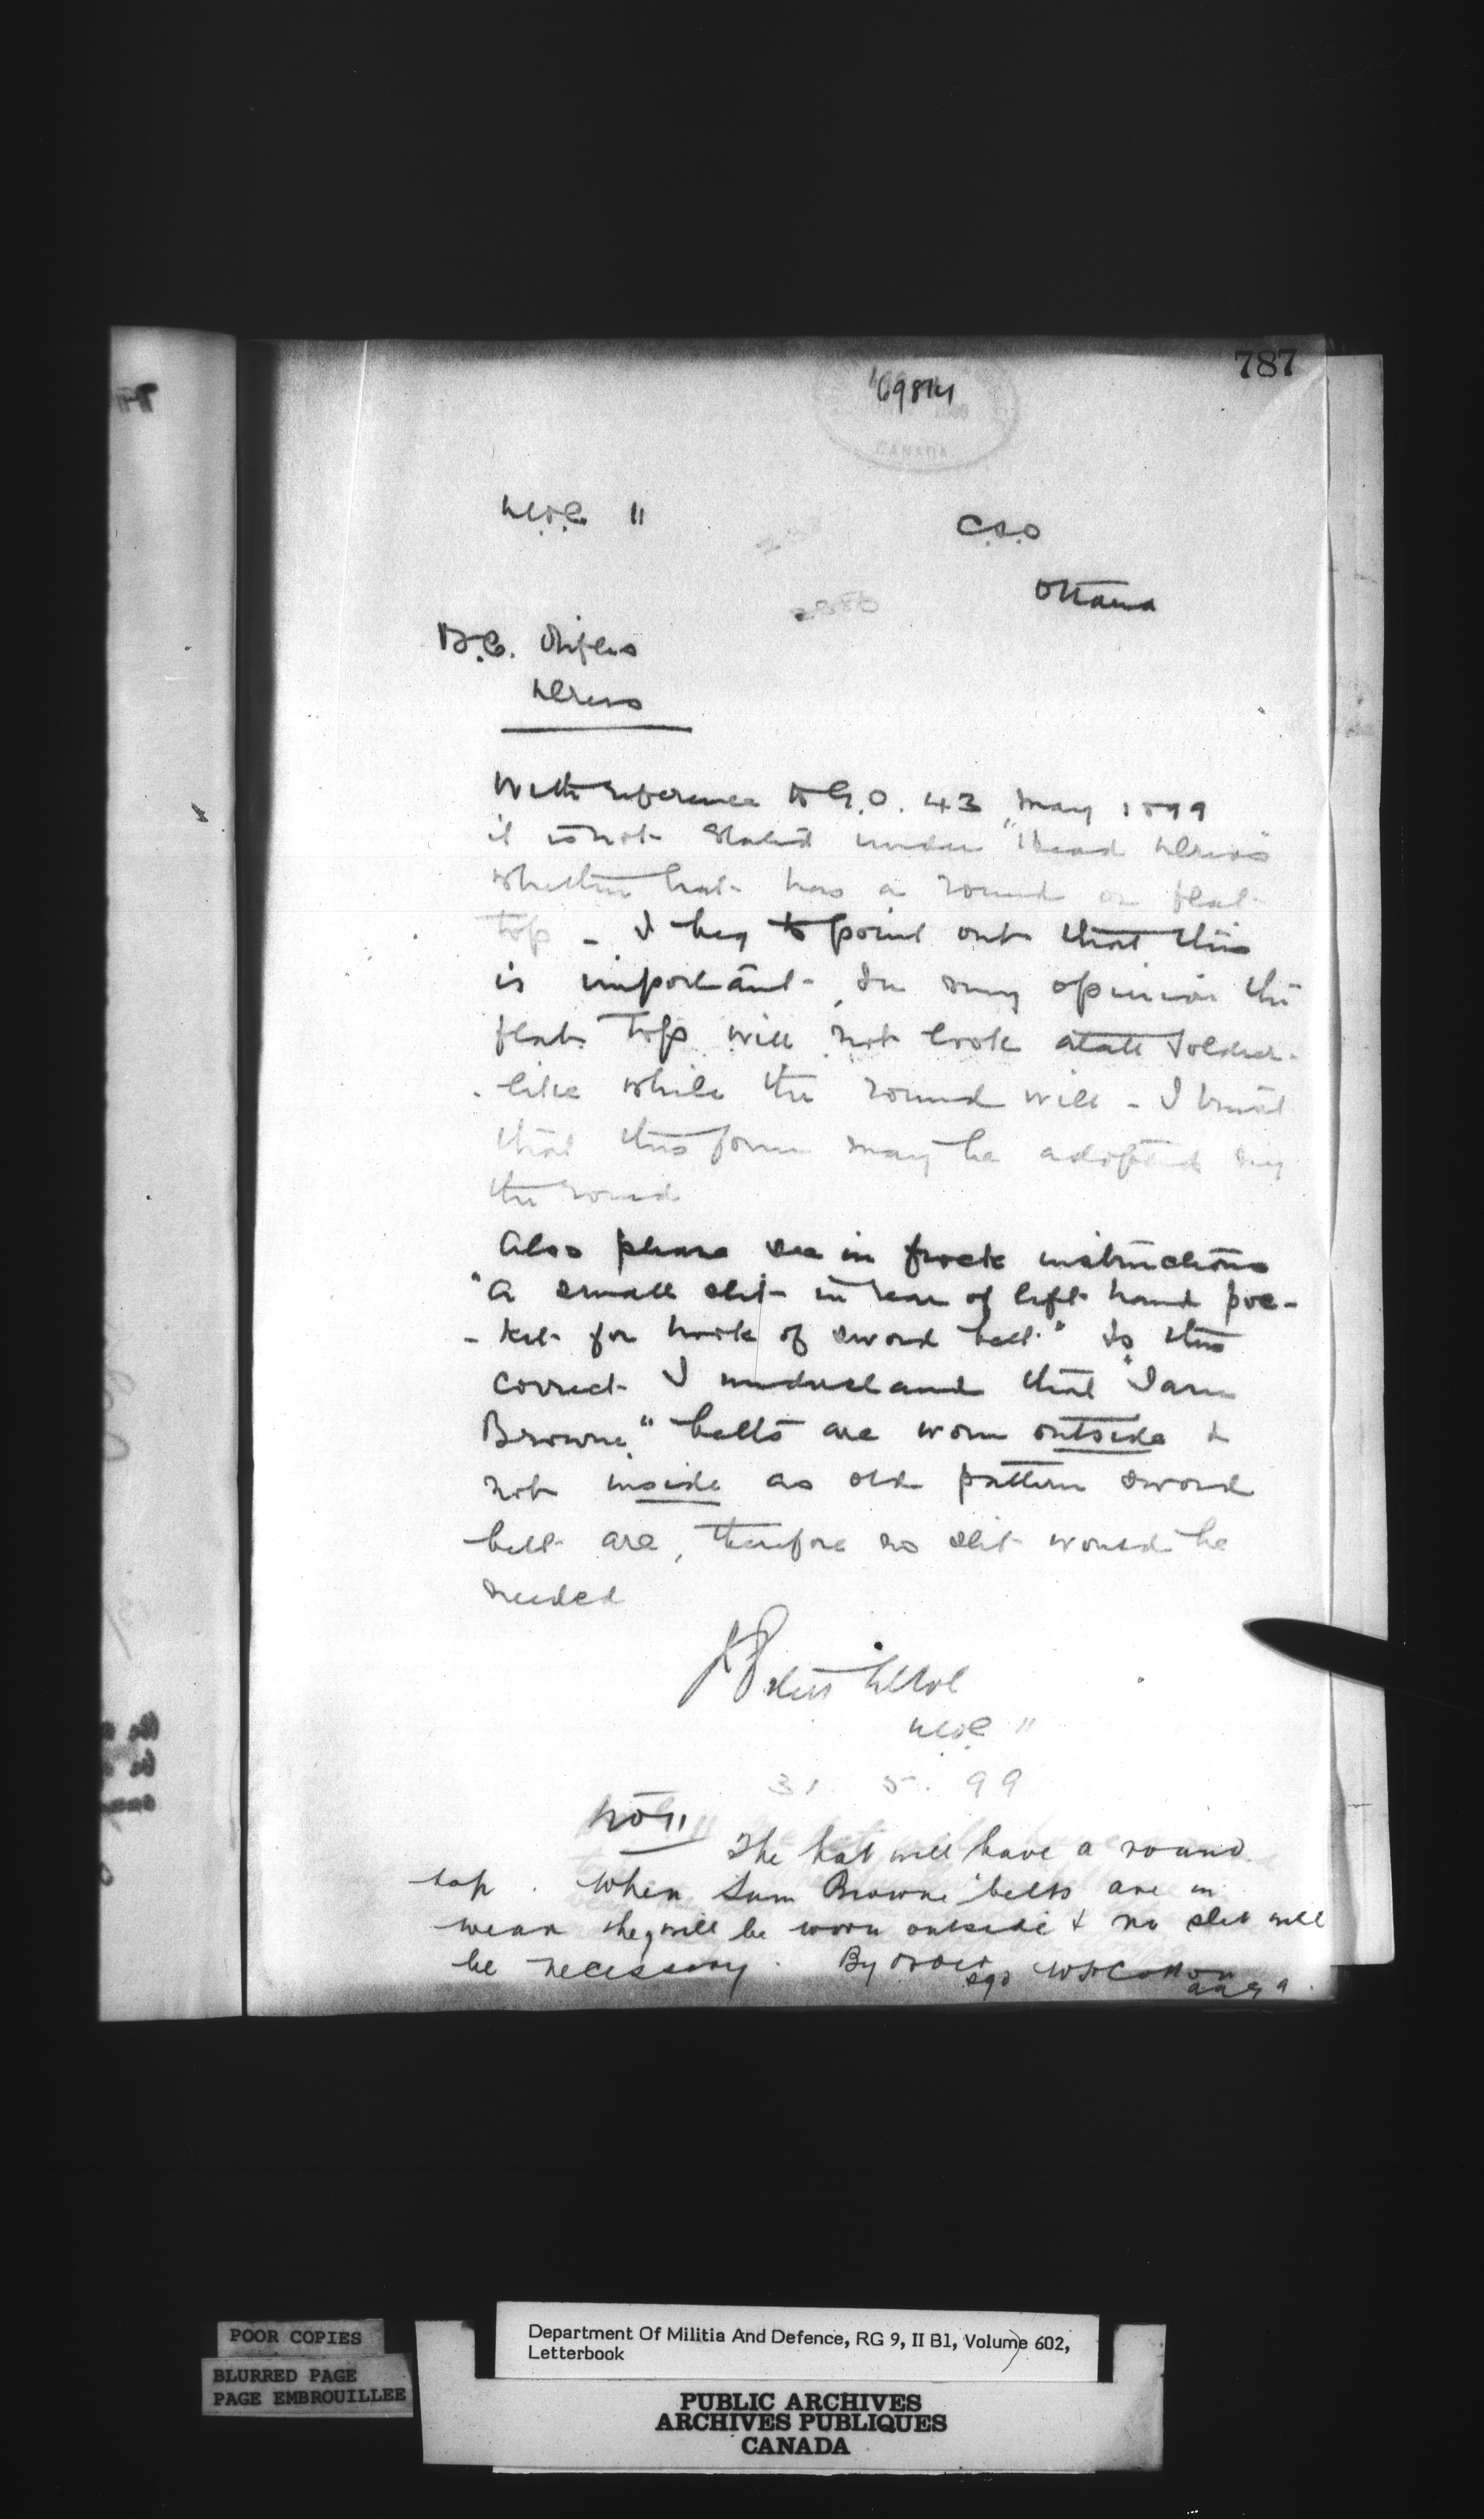 787
69814
CANADA
D.O.C. 11
C.S.O
Ottawa
B.C. Rifles
Dress
With reference to G.O. 43 May 1899
it is not stated under "Head Dress"
whether hat has a round or flat
top - I beg to point out that this
is important, In my opinion the
flat top will not look atall soldier-
-like while the round will - I trust
that this form may be adopted
the round
Also please see in frock instructions
"A small slit in rear of left hand poc-
-ket for hook of sword belt" Is this
correct I understand that "Sam
Browne" belts are worn outside &
not inside as old pattern sword
belt are, therefore no slit would be
needed
Lt Col
D.O.C 11
31. 5. 99
No 11
The hat will have a round
top. When Sam Browne belts are in
wear they will be worn outside & no slit will
be necessary. By order
sgd W H Cotton
a a g a
POOR COPIES
BLURRED PAGE
PAGE EMBROUILLEE
Department Of Militia And Defence, RG 9, II B1, Volume 602,
Letterbook
PUBLIC ARCHIVES
ARCHIVES PUBLIQUES
CANADA